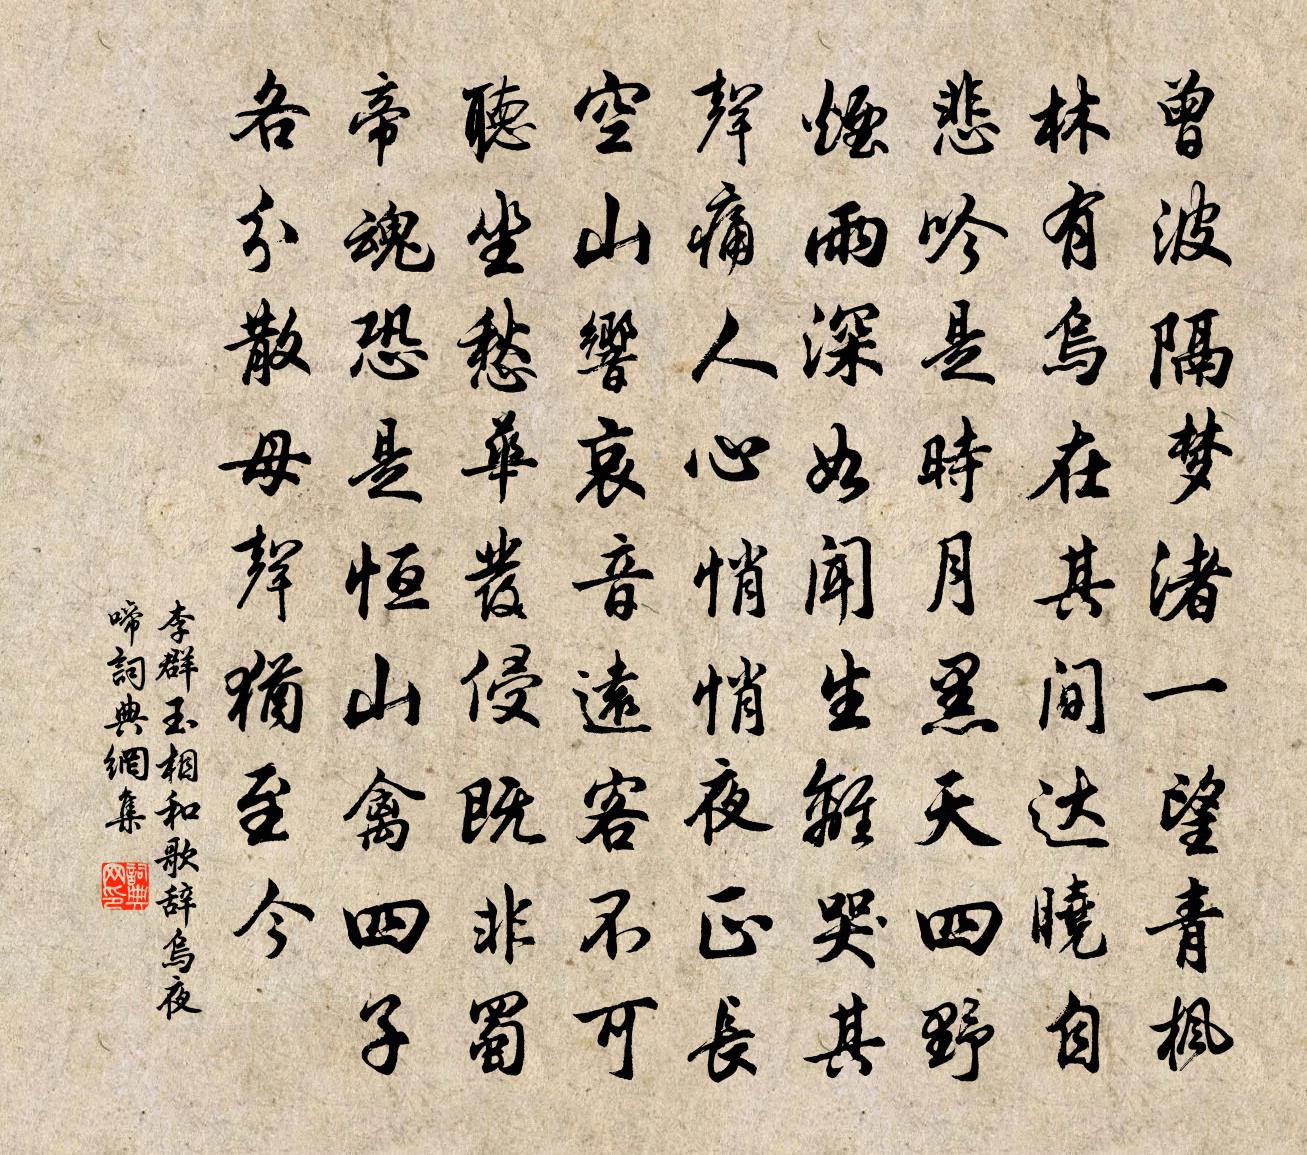 曾波隔梦渚一望青枫
林有乌在其间达晓自
悲吟是時月黑天四野
煙雨深如闻生離哭其
聲痛人心悄悄夜正長
空山響哀音遠客不可
聽坐愁華發侵既非蜀
帝魂恐是恒山禽四子
各分散母聲猶至今
李群玉相和歌辞烏夜
啼詞典網集
詞典网印